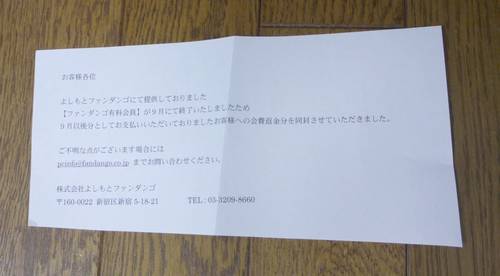 お客様各位
よしもとファンダンゴにて提供しておりました
【ファンダンゴ有料会員】が９月にて終了いたしましたため
９月以後分としてお支払いいただいておりましたお客様への会費返金分を同封させていただきました。
ご不明な点がございます場合には
pcinfo@fandango.co.jp までお問い合わせください。
株式会社よしもとファンダンゴ
〒160-0022 新宿区新宿 5-18-21 TEL : 03-3209-8660